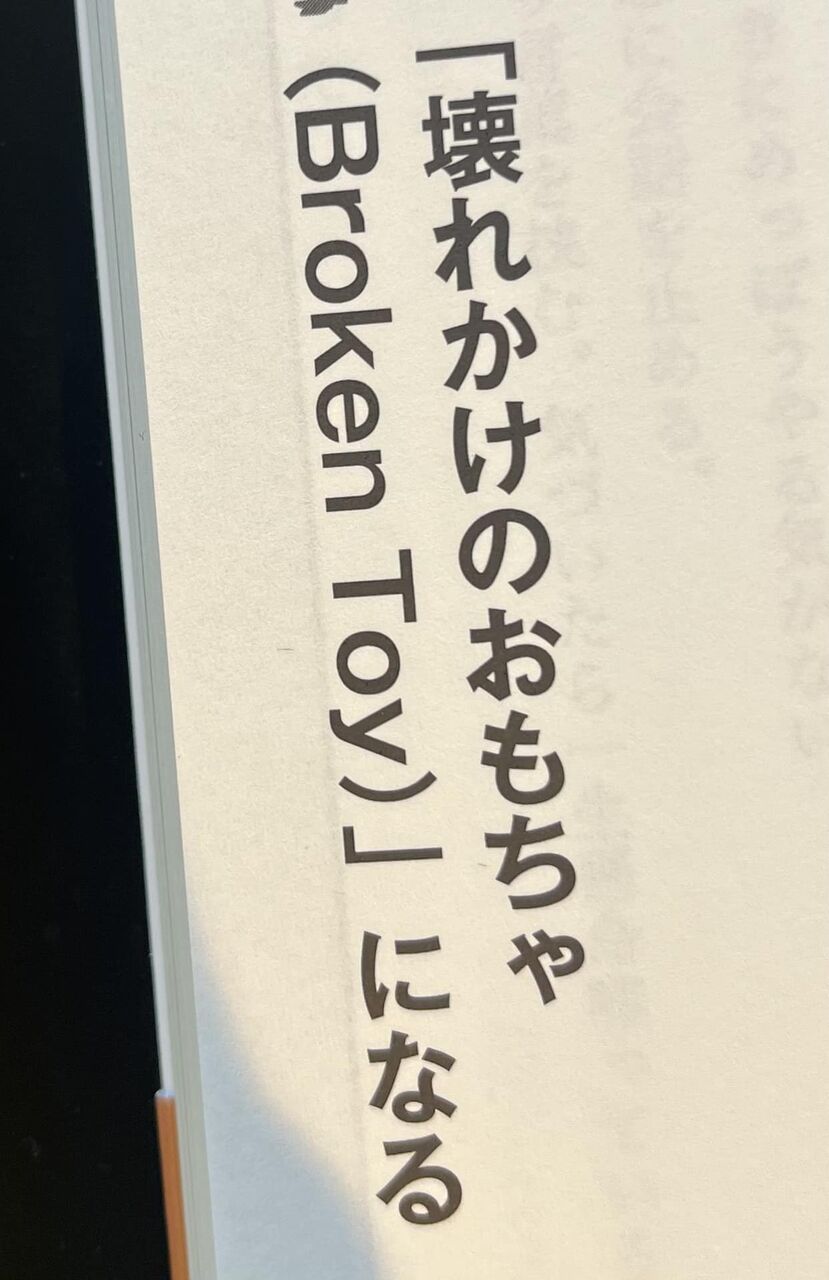 「壊れかけのおもちゃ
(Broken Toy)」になる